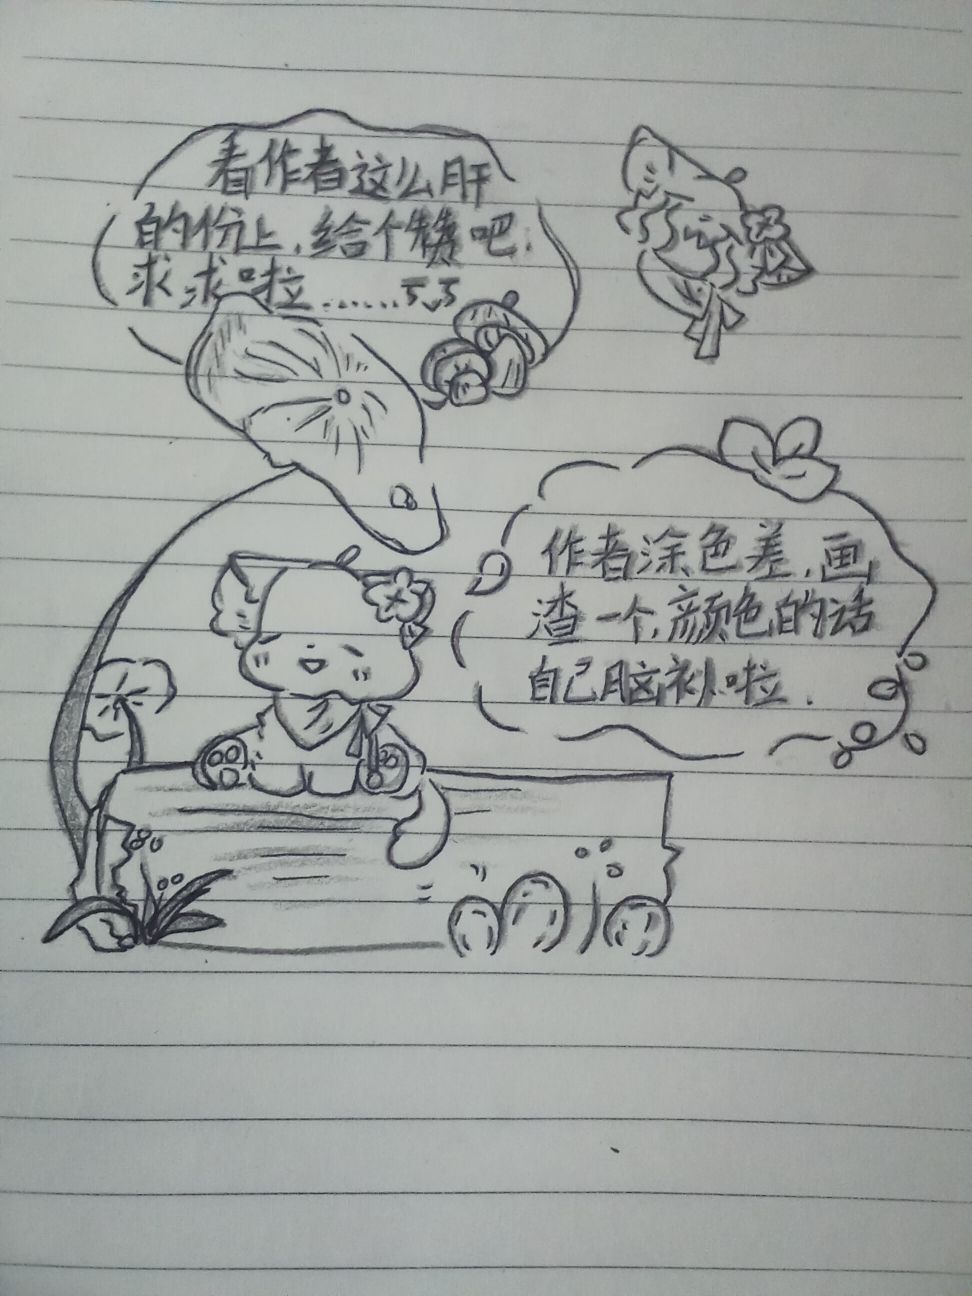 看作者这么肝
的份上,给个赞吧,
求求啦......
作者涂色差,画
渣一个,颜色的话
自己脑补啦.